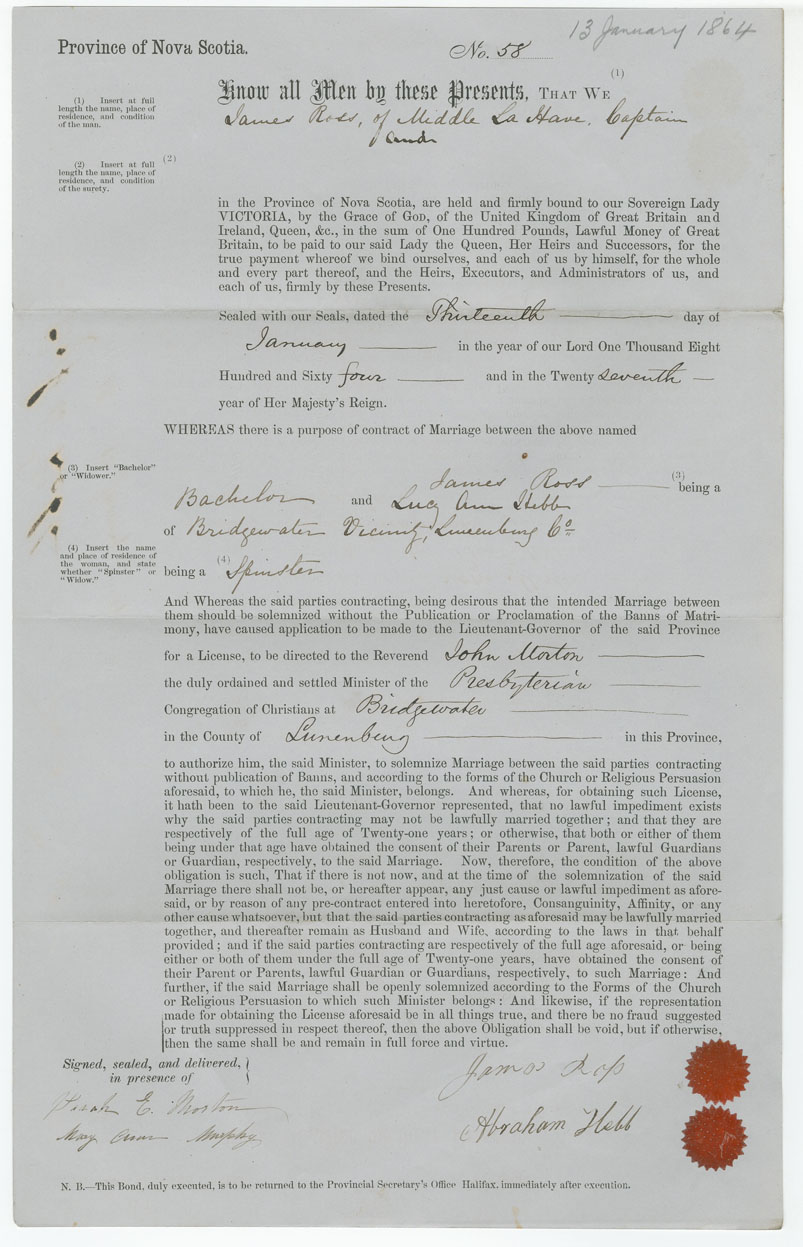 13 January 1864
Province of Nova Scotia.
No. 58
Know all Men by these Presents, THAT WE (1)
(1) Insert at full
length the name, place of
residence, and condition
of the man.
James Ross, of Middle La Have, Captain
and
(2) Insert at full
length the name, place of
residence, and condition
of the surety.
(2)
in the Province of Nova Scotia, are held and firmly bound to our Sovereign Lady
VICTORIA, by the Grace of GOD, of the United Kingdom of Great Britain and
Ireland, Queen, &c., in the sum of One Hundred Pounds, Lawful Money of Great
Britain, to be paid to our said Lady the Queen, Her Heirs and Successors, for the
true payment whereof we bind ourselves, and each of us by himself, for the whole
and every part thereof, and the Heirs, Executors, and Administrators of us, and
each of us, firmly by these Presents.
Sealed with our Seals, dated the Thirteenth day of
January in the year of our Lord One Thousand Eight
Hundred and Sixty four and in the Twenty seventh
year of Her Majesty's Reign.
WHEREAS there is a purpose of contract of Marriage between the above named
(3) Insert "Bachelor"
or "Widower."
James Ross (3) being a
Bachelor and Lucy Ann Hebb
of Bridgewater Vicinity, Lunenburg Co.
(4) Insert the name
and place of residence of
the woman, and state
whether "Spinster" or
"Widow."
being a (4) Spinster
And Whereas the said parties contracting, being desirous that the intended Marriage between
them should be solemnized without the Publication or Proclamation of the Banns of Matri-
mony, have caused application to be made to the Lieutenant-Governor of the said Province
for a License, to be directed to the Reverend John Morton
the duly ordained and settled Minister of the Presbyterian
Congregation of Christians at Bridgewater
in the County of Lunenburg in this Province,
to authorize him, the said Minister, to solemnize Marriage between the said parties contracting
without publication of Banns, and according to the forms of the Church or Religious Persuasion
aforesaid, to which he, the said Minister, belongs. And whereas, for obtaining such License,
it hath been to the said Lieutenant-Governor represented, that no lawful impediment exists
why the said parties contracting may not be lawfully married together; and that they are
respectively of the full age of Twenty-one years; or otherwise, that both or either of them
being under that age have obtained the consent of their Parents or Parent, lawful Guardians
or Guardian, respectively, to the said Marriage. Now, therefore, the condition of the above
obligation is such, That if there is not now, and at the time of the solemnization of the said
Marriage there shall not be, or hereafter appear, any just cause or lawful impediment as afore-
said, or by reason of any pre-contract entered into heretofore, Consanguinity, Affinity, or any
other cause whatsoever, but that the said parties contracting as aforesaid may be lawfully married
together, and thereafter remain as Husband and Wife, according to the laws in that behalf
provided; and if the said parties contracting are respectively of the full age aforesaid, or being
either or both of them under the full age of Twenty-one years, have obtained the consent of
their Parent or Parents, lawful Guardian or Guardians, respectively, to such Marriage: And
further, if the said Marriage shall be openly solemnized according to the Forms of the Church
or Religious Persuasion to which such Minister belongs: And likewise, if the representation
made for obtaining the License aforesaid be in all things true, and there be no fraud suggested
or truth suppressed in respect thereof, then the above Obligation shall be void, but if otherwise,
then the same shall be and remain in full force and virtue.
Signed, sealed, and delivered,
in presence of
James Ross
Sarah E. Morton
Abraham Hebb
Mary Ann Murphy
N. B.—This Bond, duly executed, is to be returned to the Provincial Secretary's Office Halifax, immediately after execution.